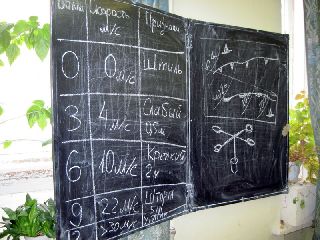 Баллы Скорость м/с Признаки
0 0 м/с Штиль
3 4 м/с Слабый
6 10 м/с Крепкий
2 м
9 22 м/с Шторм
12 >30 м/с